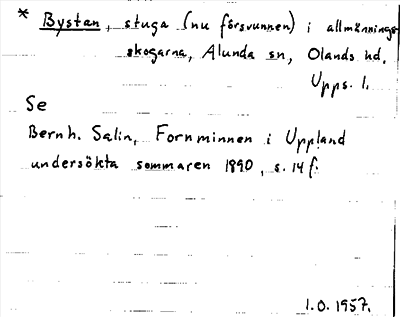 * Bystan, stuga (nu försvunnen) i allmännings-
skogarna, Alunda sn, Olands hd,
Upps. l.
Se
Bernh. Salin, Fornminnen i Uppland
undersökta sommaren 1890, s. 14 f.
I.O. 1957.